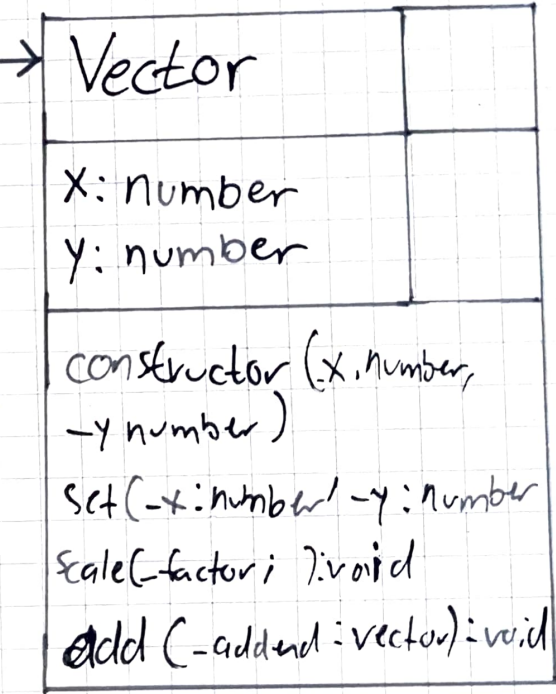 Vector
x: number
y: number
constructor (_x, number,
_y number)
set(_x: number, _y: number
scale(_factor; ): void
add (_addend: vector): void